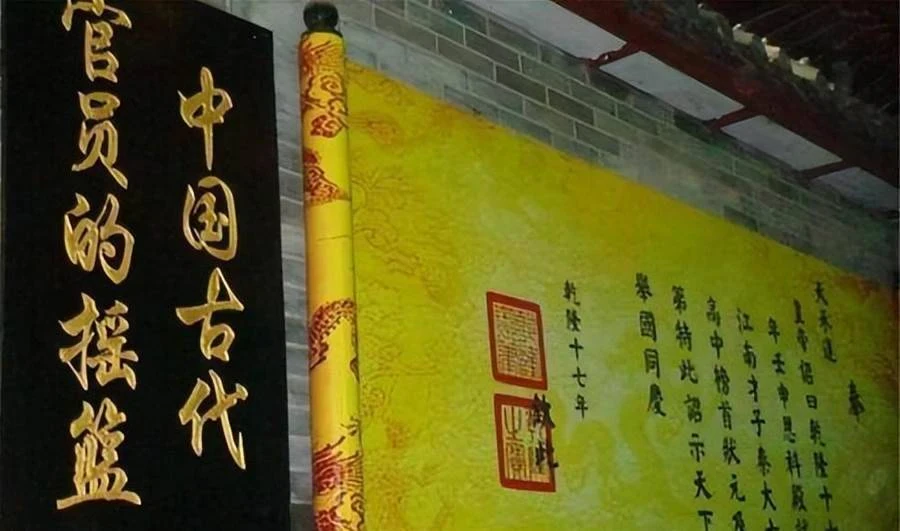 中国古代
官员的摇篮
奉
天承運
皇帝詔曰乾隆十
年壬申恩科殿試
江南才子秦大
高中榜首狀元及
第特此詔示天下
舉國同慶
乾隆十七年
欽此